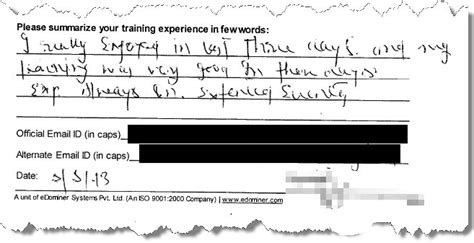 Please summarize your training experience in few words:
I really enjoyed in last Three days. and my
training was very good in then days
Exp. Always
Official Email ID (in caps)
Alternate Email ID (in caps)
Date: 5/5/13
A unit of eDominer Systems Pvt. Ltd. (An ISO 9001:2000 Company) | www.edominer.com